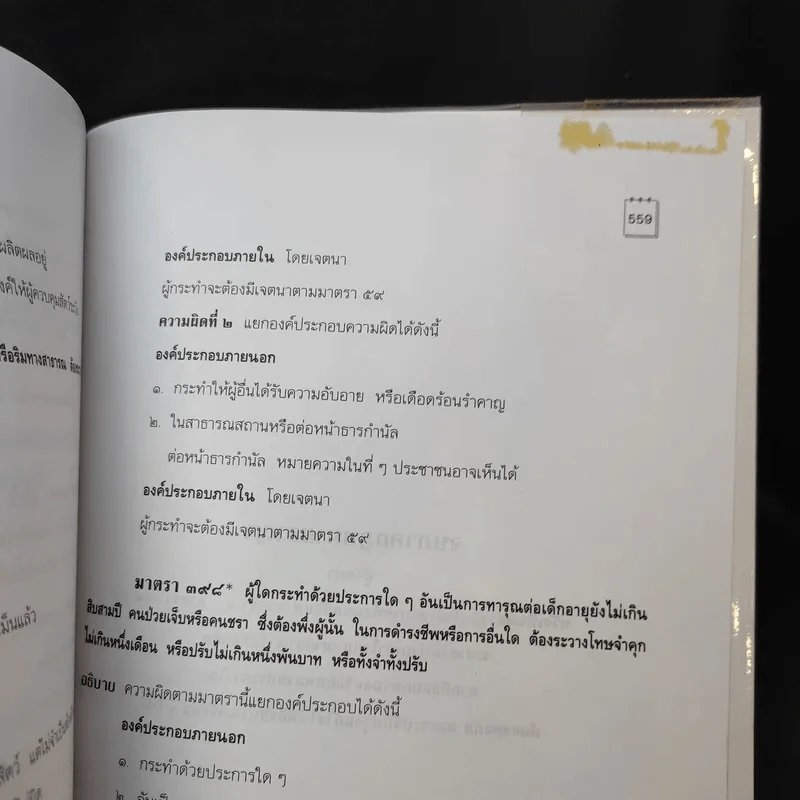 ผลิตผลอยู่
559
องค์ประกอบภายใน โดยเจตนา
ผู้กระทำจะต้องมีเจตนาตามมาตรา ๕๙
ความผิดที่ ๒ แยกองค์ประกอบความผิดได้ดังนี้
องค์ประกอบภายนอก
๑. กระทำให้ผู้อื่นได้รับความอับอาย หรือเดือดร้อนรำคาญ
๒. ในสาธารณสถานหรือต่อหน้าธารกำนัล
ต่อหน้าธารกำนัล หมายความในที่ ๆ ประชาชนอาจเห็นได้
องค์ประกอบภายใน โดยเจตนา
ผู้กระทำจะต้องมีเจตนาตามมาตรา ๕๙
มาตรา ๓๙๘* ผู้ใดกระทำด้วยประการใด ๆ อันเป็นการทารุณต่อเด็กอายุยังไม่เกิน
สิบสามปี คนป่วยเจ็บหรือคนชรา ซึ่งต้องพึ่งผู้นั้น ในการดำรงชีพหรือการอื่นใด ต้องระวางโทษจำคุก
ไม่เกินหนึ่งเดือน หรือปรับไม่เกินหนึ่งพันบาท หรือทั้งจำทั้งปรับ
อธิบาย ความผิดตามมาตรานี้แยกองค์ประกอบได้ดังนี้
องค์ประกอบภายนอก
๑. กระทำด้วยประการใด ๆ